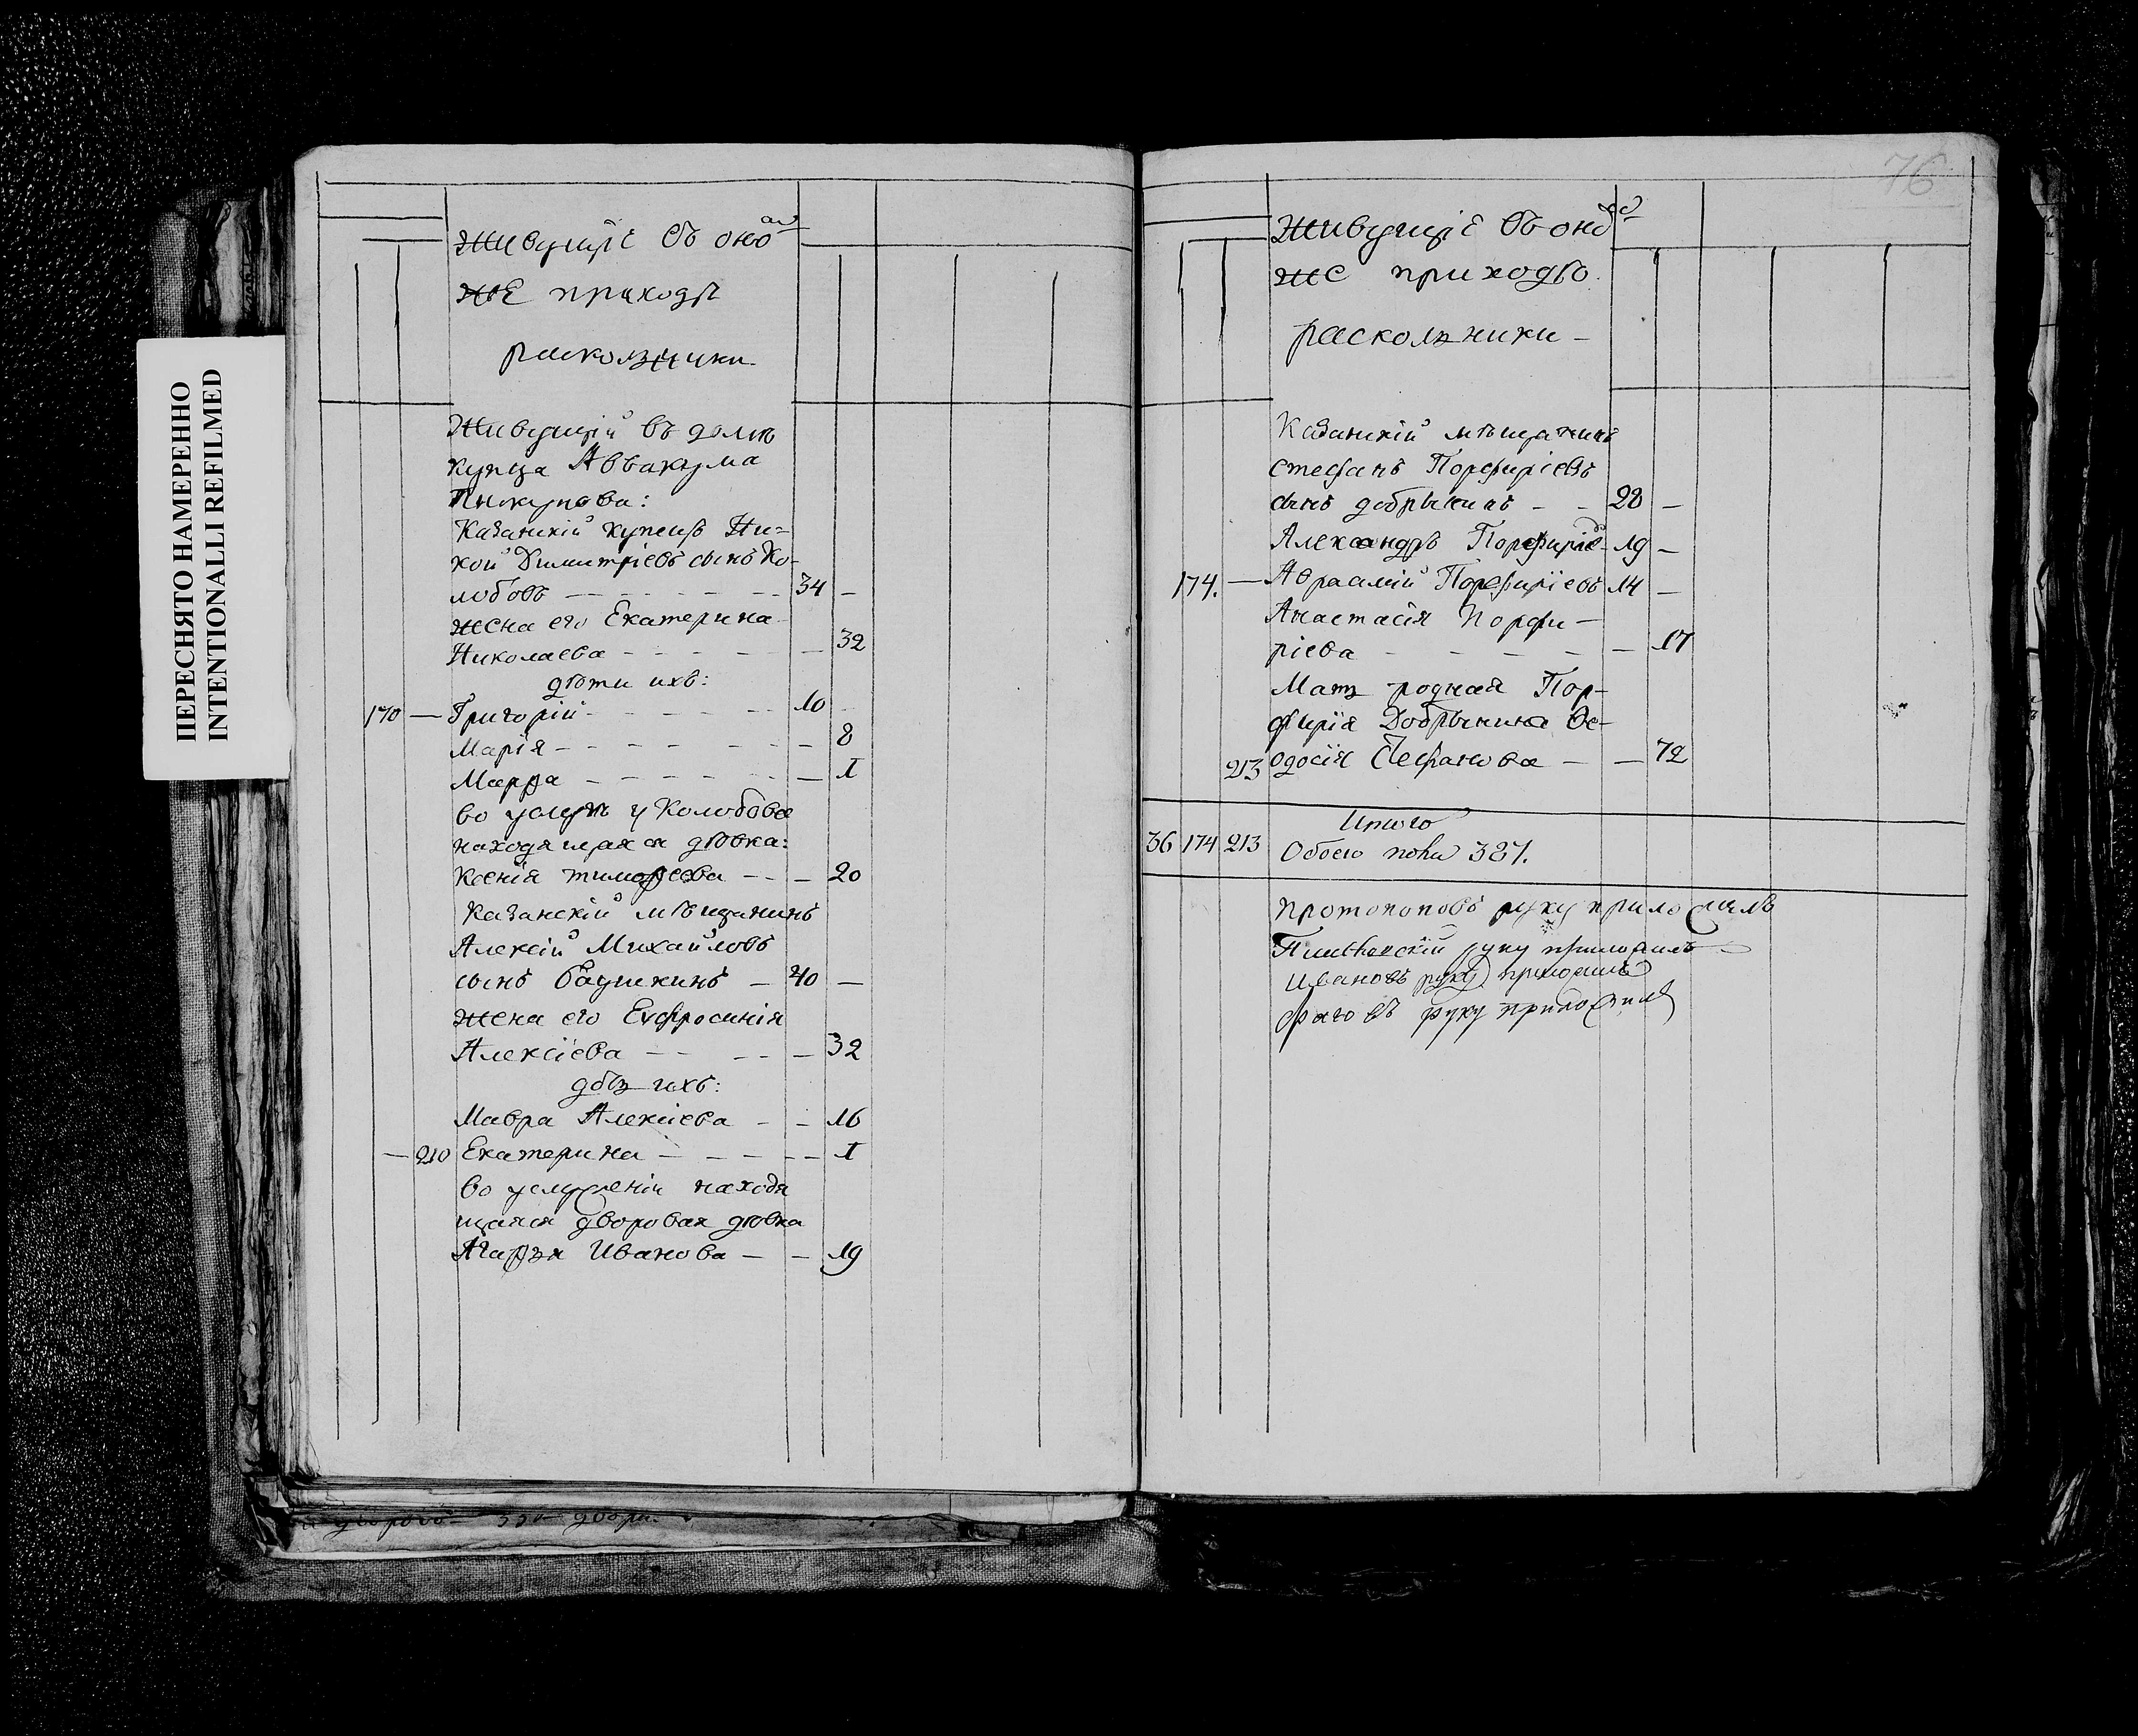 ПЕРЕСНЯТО НАМЕРЕННО
INTENTIONALLI REFILMED
Живущіе въ оно
же приходѣ
раскольники
Живущій въ домѣ
купца Аввакума
Казанскій купецъ Ни=
кои Димитріевъ сынъ Ко-
лобовъ — 34 —
жена его Екатерина
Николаева — 32
дѣти ихъ:
170 — Григорій — 10
Марія — 8
Марфа — 1
во услуг у Колобова
находящаяся дѣвка:
Ксенія тимофеева — 20
Казанскій мѣщанинъ
Алексій Михайловъ
сынъ — 40 —
жена его Евфросинія
Алексіева — 32
дщь ихъ:
Мавра Алексіева — 16
— 210 Екатерина — 1
во услуженіи находя
щаяся дворовая дѣвка
Агафья Иванова — 19
76
Живущіе въ оно
же приходѣ
раскольники —
Казанскій мѣщанинъ
стефанъ Порфиріевъ
сынъ добрынинъ — 28 —
Александръ Порфиріе 19 —
174. — Авраамій Порфиріевъ 14 —
Анастасія Порфи—
ріева — 17
Мать родная Пор-
фирія Добрынина Ѳе-
213 одосія Стефанова — 72
Итого
36 174 213 Обоего пола 387.
Протопоповъ руку приложилъ
руку приложилъ
Ивановъ руку приложилъ
руку приложилъ